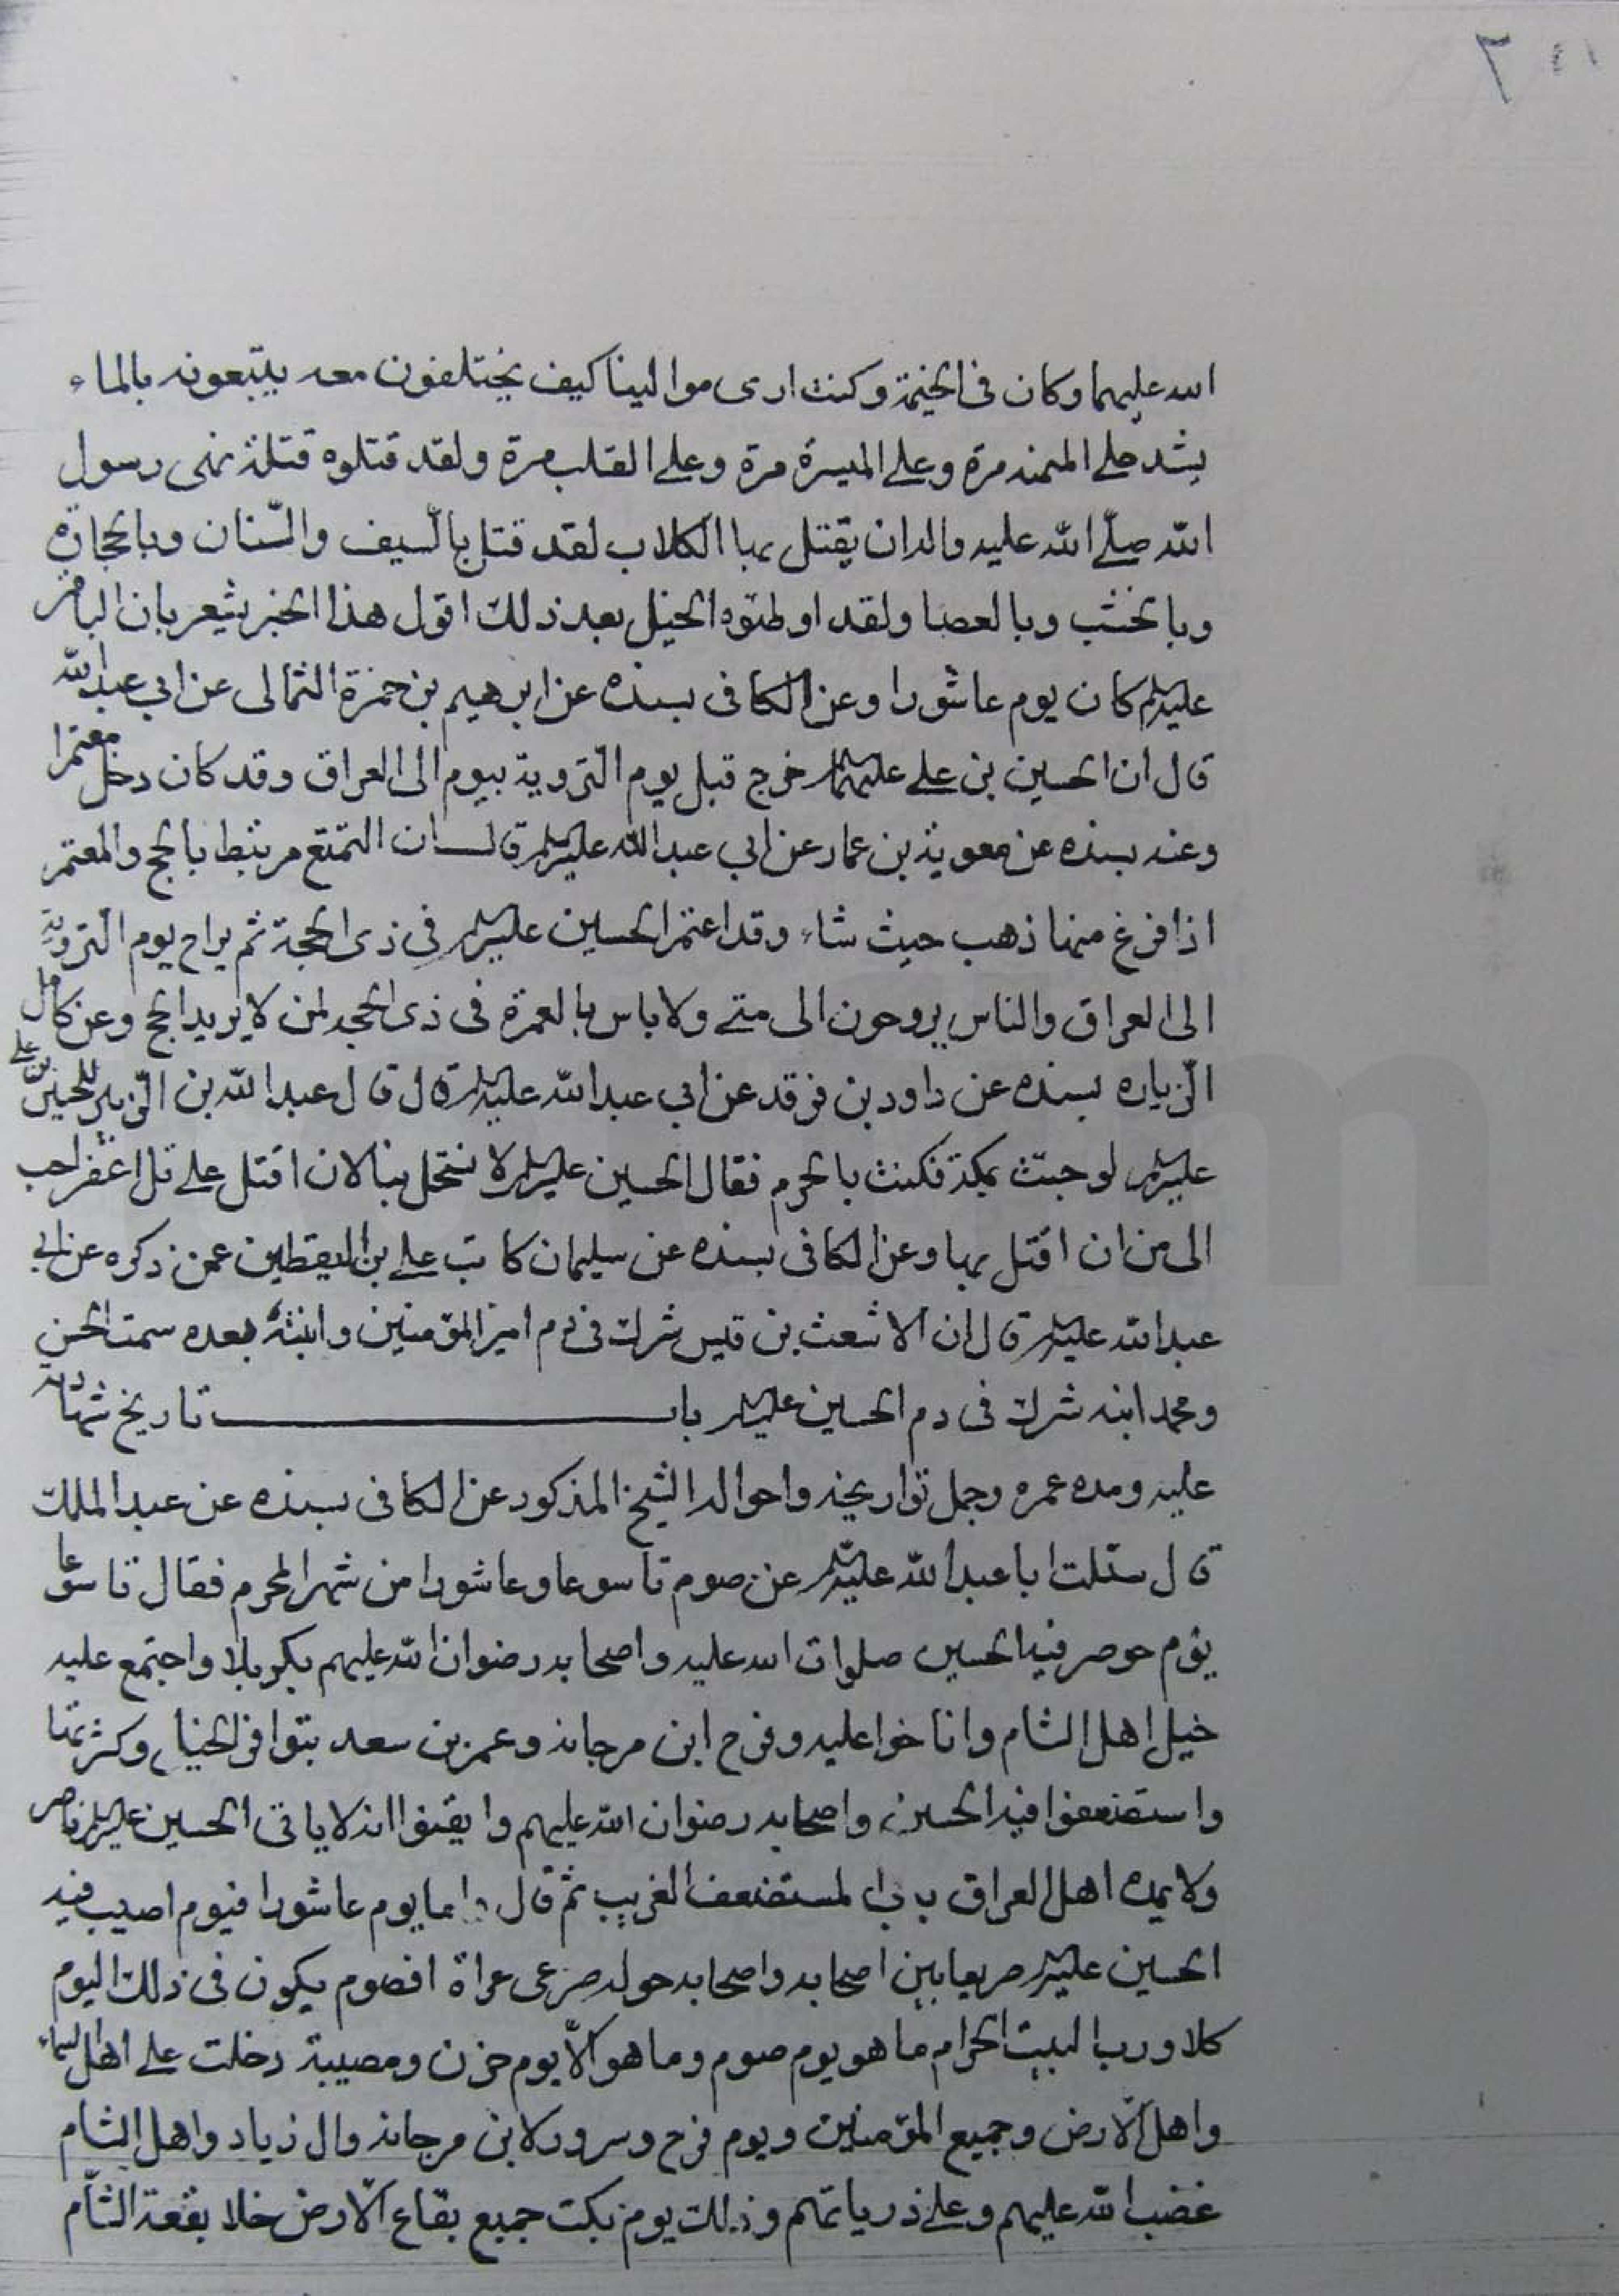 ٢
الله عليهما وكان فى الخيمة وكنت ارى موالينا كيف يختلفون معه يتبعونه بالماء
يشد على الميمنه مرة وعلى الميسرة مرة وعلى القلب مرة ولقد قتلوه قتلة نهى رسول
الله صلّى الله عليه واله ان يقتل بها الكلاب لقد قتل بالسّيف والسّنان وبالحجارة
وبالخشب وبالعصا ولقد اوطئوه الخيل بعد ذلك اقول هذا الخبر يشعر بان الباقر
عليه السلم كان يوم عاشورا وعن الكافى بسنده عن ابرهيم بن حمزة الثمالى عن ابي عبد الله
قال ان الحسين بن على عليهما السلم خرج قبل يوم التّروية بيوم الى العراق وقد كان دخل معتمرا
وعنه بسنده عن معوية بن عمار عن ابي عبد الله عليه السلم قال ان التمتع مرتبط بالحج والمعتمر
اذا فرغ منها ذهب حيث شاء وقد اعتمر الحسين عليه السلم فى ذى الحجة ثم يراح يوم التّروية
الى العراق والناس يروحون الى متى ولا باس بالعمرة فى ذى الحجه لمن لا يريد الحج وعن كامل
الزّياره بسنده عن داود بن فرقد عن ابي عبد الله عليه السلم قال قال عبد الله بن الزّبير للحسين بن على
عليه السلم لو جئت بمكة فكنت بالحرم فقال الحسين عليه السلم لا نستحل بنا لان اقتل على تل اعفر احب
الى من ان اقتل بها وعن الكافى بسنده عن سليمان كاتب على بن اليقطين عمن ذكره عن ابي
عبد الله عليه السلم قال ان الاشعث بن قيس شرك فى دم امير المؤمنين وابنته بعده سمت الحسن
ومحمد ابنه شرك فى دم الحسين عليه السلم باب تاريخ شهادته
عليه ومده عمره وجمل تواريخه واحواله الشيخ المذكور عن الكافى بسنده عن عبد الملك
قال سئلت ابا عبد الله عليه السلم عن صوم تاسوعا وعاشورا من شهر المحرم فقال تاسوعا
يوم حوصر فيه الحسين صلوات الله عليه واصحابه رضوان الله عليهم بكربلا واجتمع عليه
خيل اهل الشام واناخوا عليه وفرح ابن مرجانه وعمر بن سعد بتوافر الخيل وكثرتها
واستضعفوا فيه الحسين واصحابه رضوان الله عليهم وايقنوا انه لا ياتى الحسين عليه السلم ناصر
ولا يمده اهل العراق بابى المستضعف الغريب ثم قال واما يوم عاشورا فيوم اصيب فيه
الحسين عليه السلم صريعا بين اصحابه واصحابه حوله صرعى عراة افصوم يكون فى ذلك اليوم
كلا ورب البيت الحرام ما هو يوم صوم وما هو الّا يوم حزن ومصيبة دخلت على اهل السماء
واهل الارض وجميع المؤمنين ويوم فرح وسرور لابن مرجانه وال زياد واهل الشام
غضب الله عليهم وعلى ذرياتهم وذلك يوم بكت جميع بقاع الارض خلا بقعة الشّام